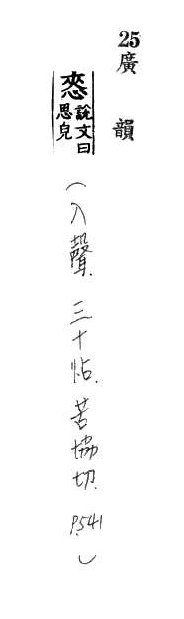 25 廣韻
說文曰
思皃
(入聲. 三十帖. 苦協切. P.541)